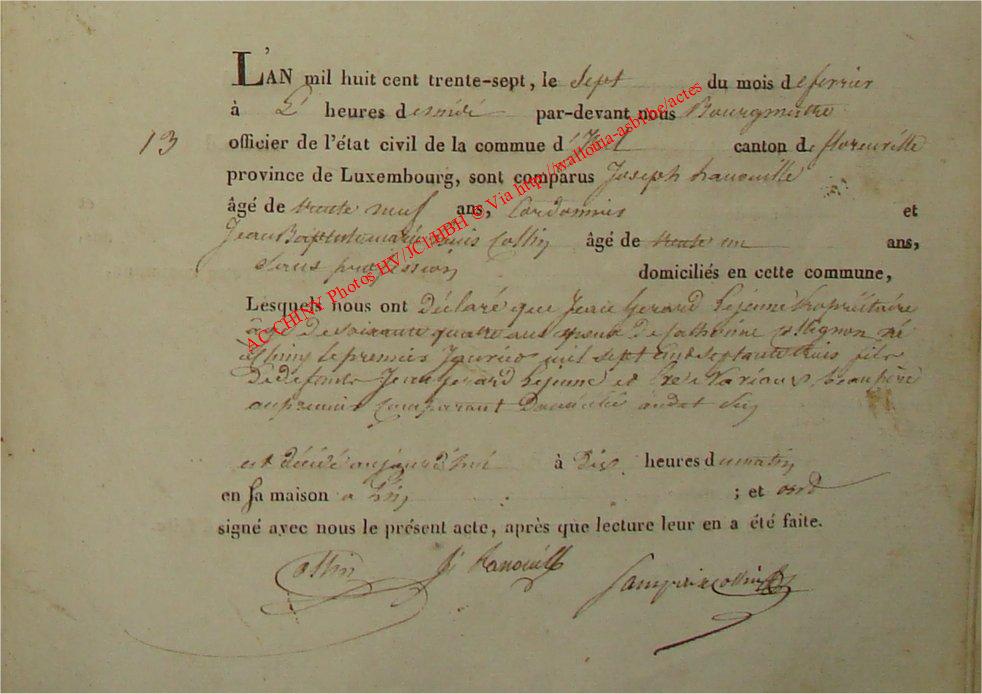 L'AN mil huit cent trente-sept, le sept du mois de fevrier
à heures de midi par-devant nous Bourgmestre
13 officier de l'état civil de la commue d' canton de florenville
province de Luxembourg, sont comparus Joseph hanouille
âgé de trente neuf ans, Cordonnier et
Jean Baptiste marie Collin âgé de trente un ans,
Sans profession domiciliés en cette commune,
Lesquels nous ont Déclaré que Jean Gerard Lejeune Propriétaire
âgé de Soixante quatre ans epoux de Catherine né
à Chiny le premier Janvier mil sept cent Septante trois fils
De défunts Jean Gerard Lejeune et beaupère
au premier Comparant Domicilié
est décédé aujourd'hui à Dix heures du matin
en Sa maison a ; et ont
signé avec nous le présent acte, après que lecture leur en a été faite.
Collin J. hanouille Collin
AC CHINY Photos HV/JCl-HBH © Via http://wallonia-asbl.be/actes